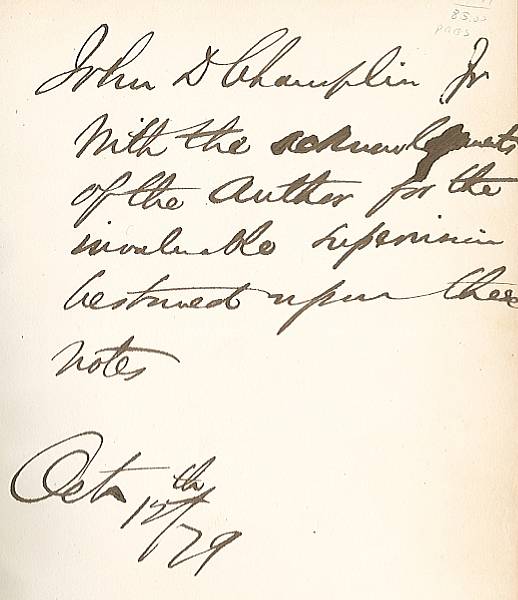 85.00
John D Champlin Jr
With the acknowlegments
of the Author for the
invaluable supervision
bestowed upon these
notes
Octr 12th/79